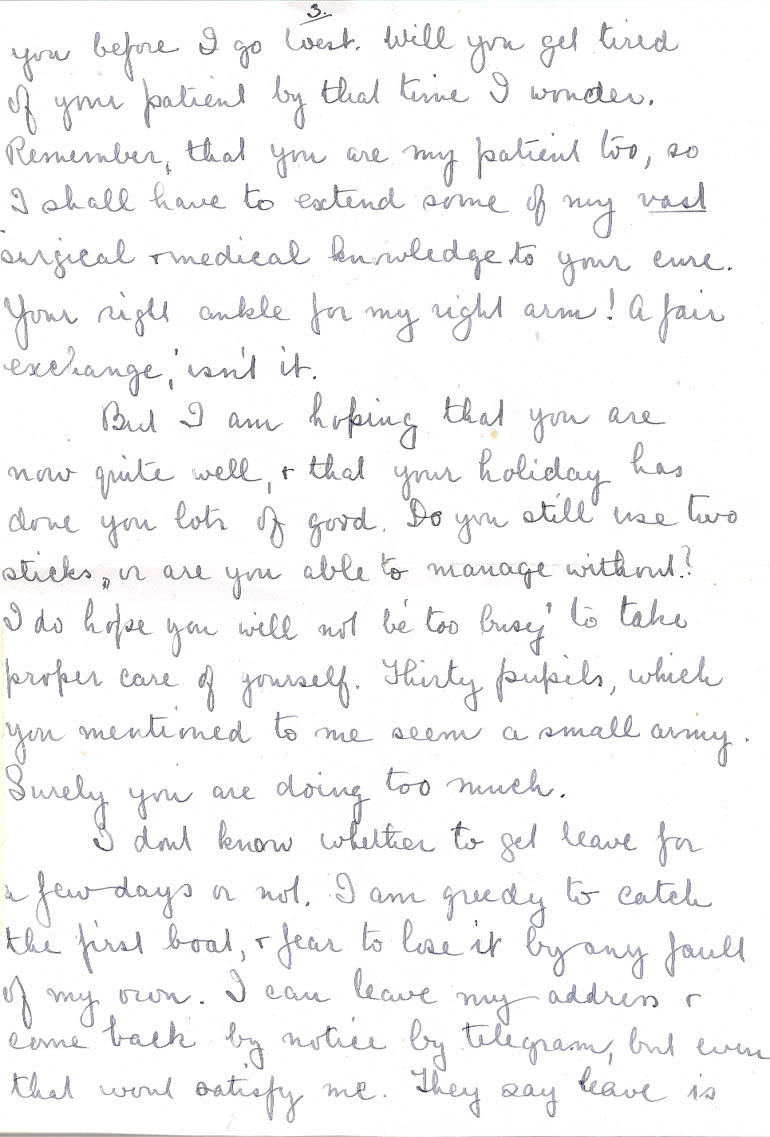 3.
you before I go West. Will you get tired
of your patient by that time I wonder.
Remember, that you are my patient too, so
I shall have to extend some of my vast
surgical + medical knowledge to your cure.
Your right ankle for my right arm! A fair
exchange, isn't it.
But I am hoping that you are
now quite well, + that your holiday has
done you lots of good. Do you still use two
sticks, or are you able to manage without?
I do hope you will not be too busy to take
proper care of yourself. Thirty pupils, which
you mentioned to me seem a small army.
Surely you are doing too much.
I dont know whether to get leave for
a few days or not. I am greedy to catch
the first boat, + fear to lose it by any fault
of my own. I can leave my address +
come back by notice by telegram, but even
that wont satisfy me. They say leave is